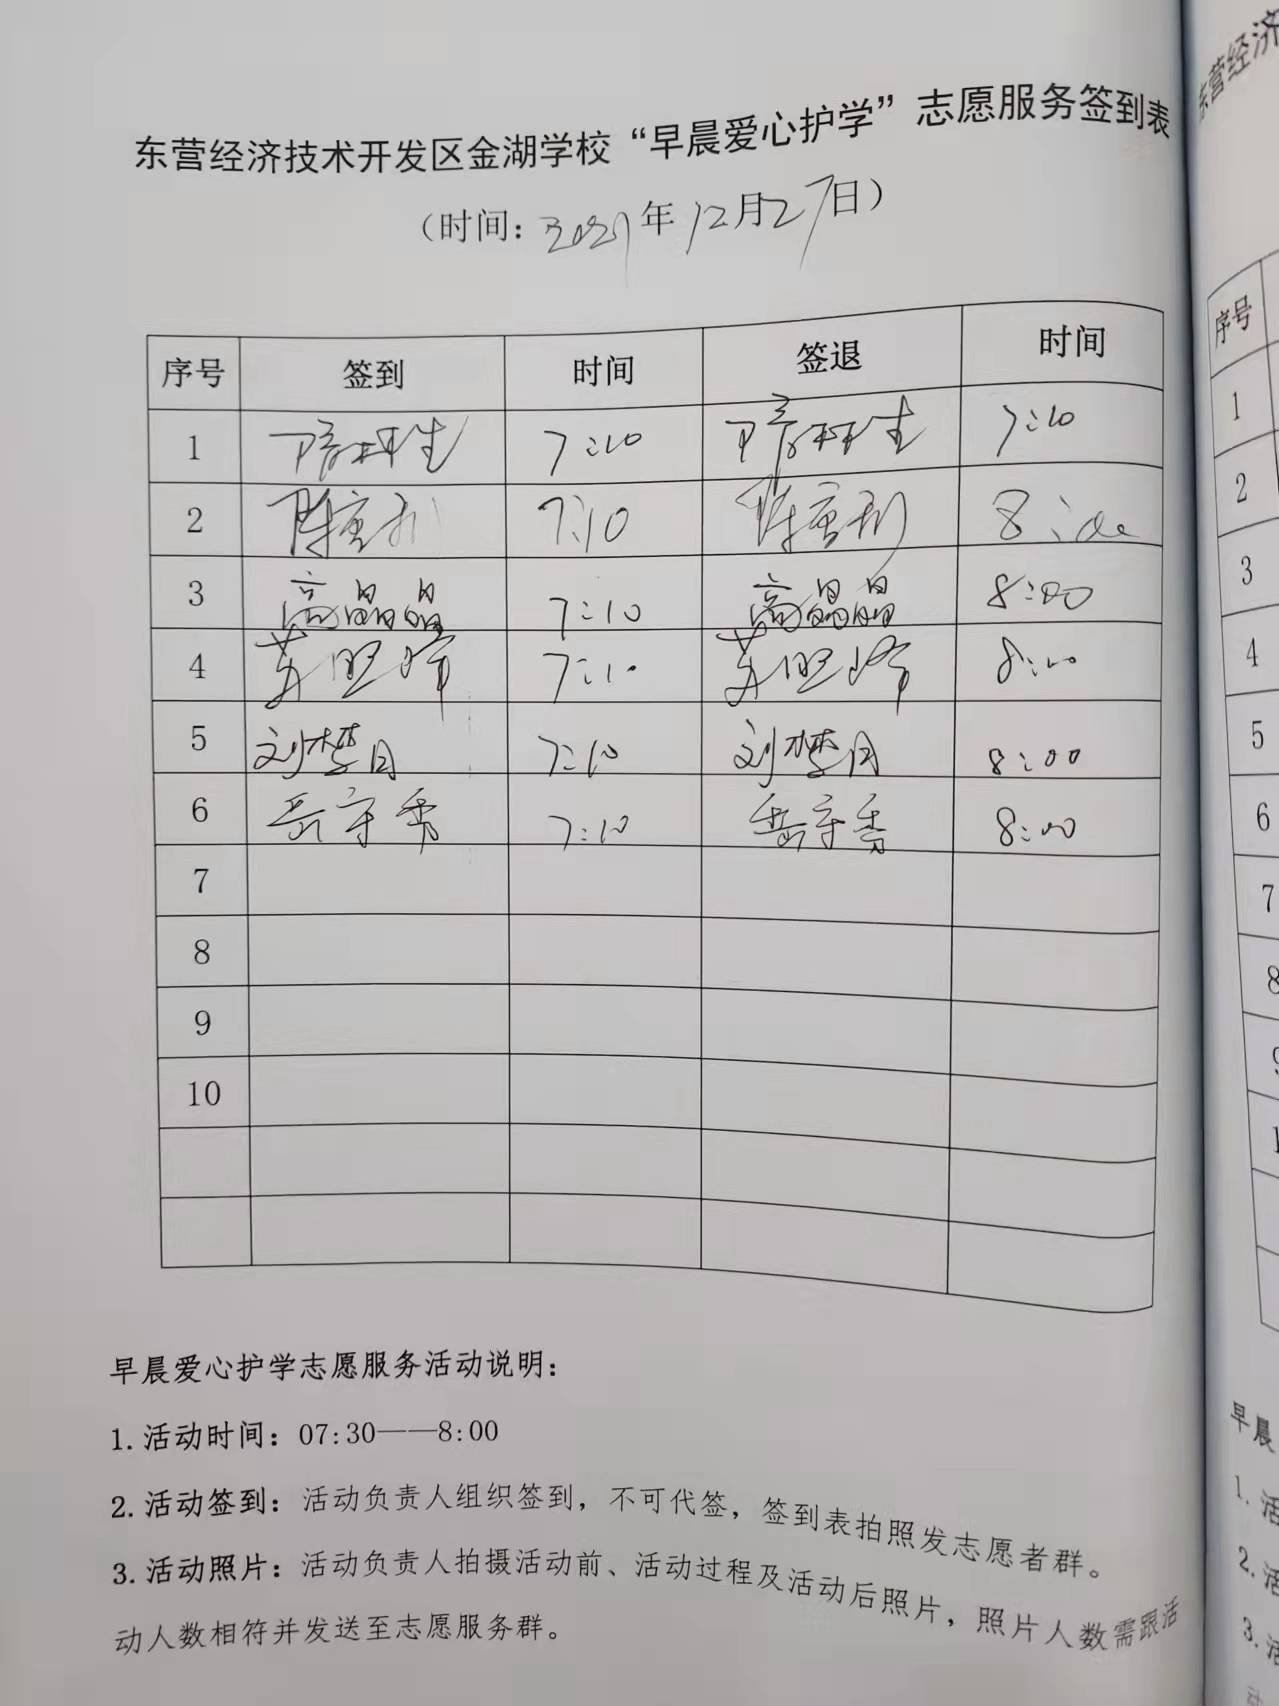 东营经济技术开发区金湖学校“早晨爱心护学”志愿服务签到表
（时间：2021年12月27日）
序号 签到 时间 签退 时间
1 7:10 7:10
2 7:10
3 高晶晶 7:10 高晶晶 8:00
4 7:10 8:00
5 刘梦月 7:10 刘梦月 8:00
6 岳守秀 7:10 岳守秀 8:00
7
8
9
10
早晨爱心护学志愿服务活动说明：
1.活动时间：07:30——8:00
2.活动签到：活动负责人组织签到，不可代签，签到表拍照发志愿者群。
3.活动照片：活动负责人拍摄活动前、活动过程及活动后照片，照片人数需跟活
动人数相符并发送至志愿服务群。
东营经济
序号
1
2
3
4
5
6
7
8
早晨
1.活
2.活
3.活